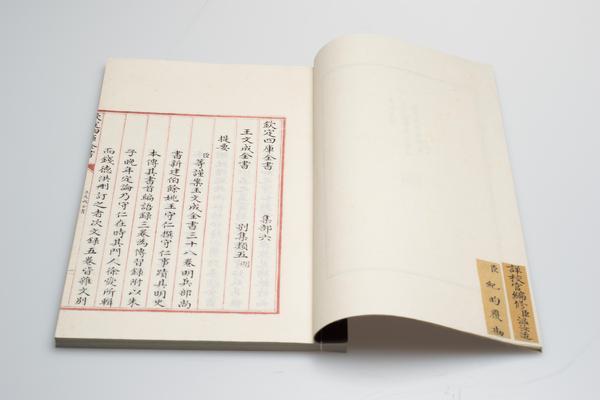 欽定四庫全書 集部六
王文成全書 別集類五明
提要
臣等謹案王文成全書三十八卷明兵部尚
書新建伯餘姚王守仁撰守仁事蹟具明史
本傳其書首編語錄三卷為傳習錄附以朱
子晚年定論乃守仁在時其門人徐愛所輯
而錢德洪刪訂之者次文錄五卷皆雜文別
詳校官編修臣
臣紀昀覆勘